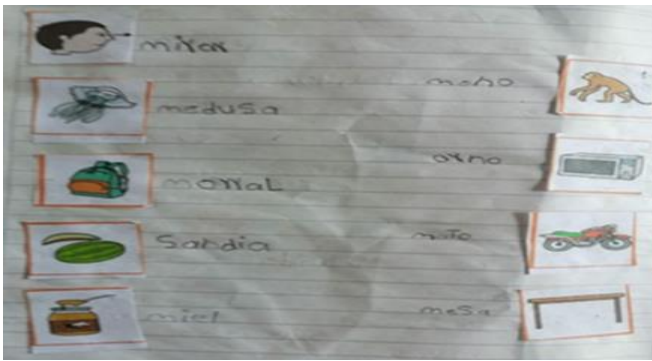 mirar
medusa
morral
Sandia
miel
mono
orno
moto
mesa